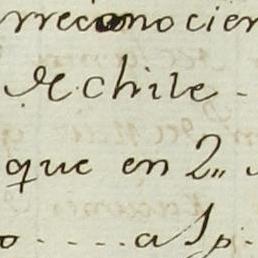 rreconocien
de chile -
que en 2,,
o - . . . . a 1 p.